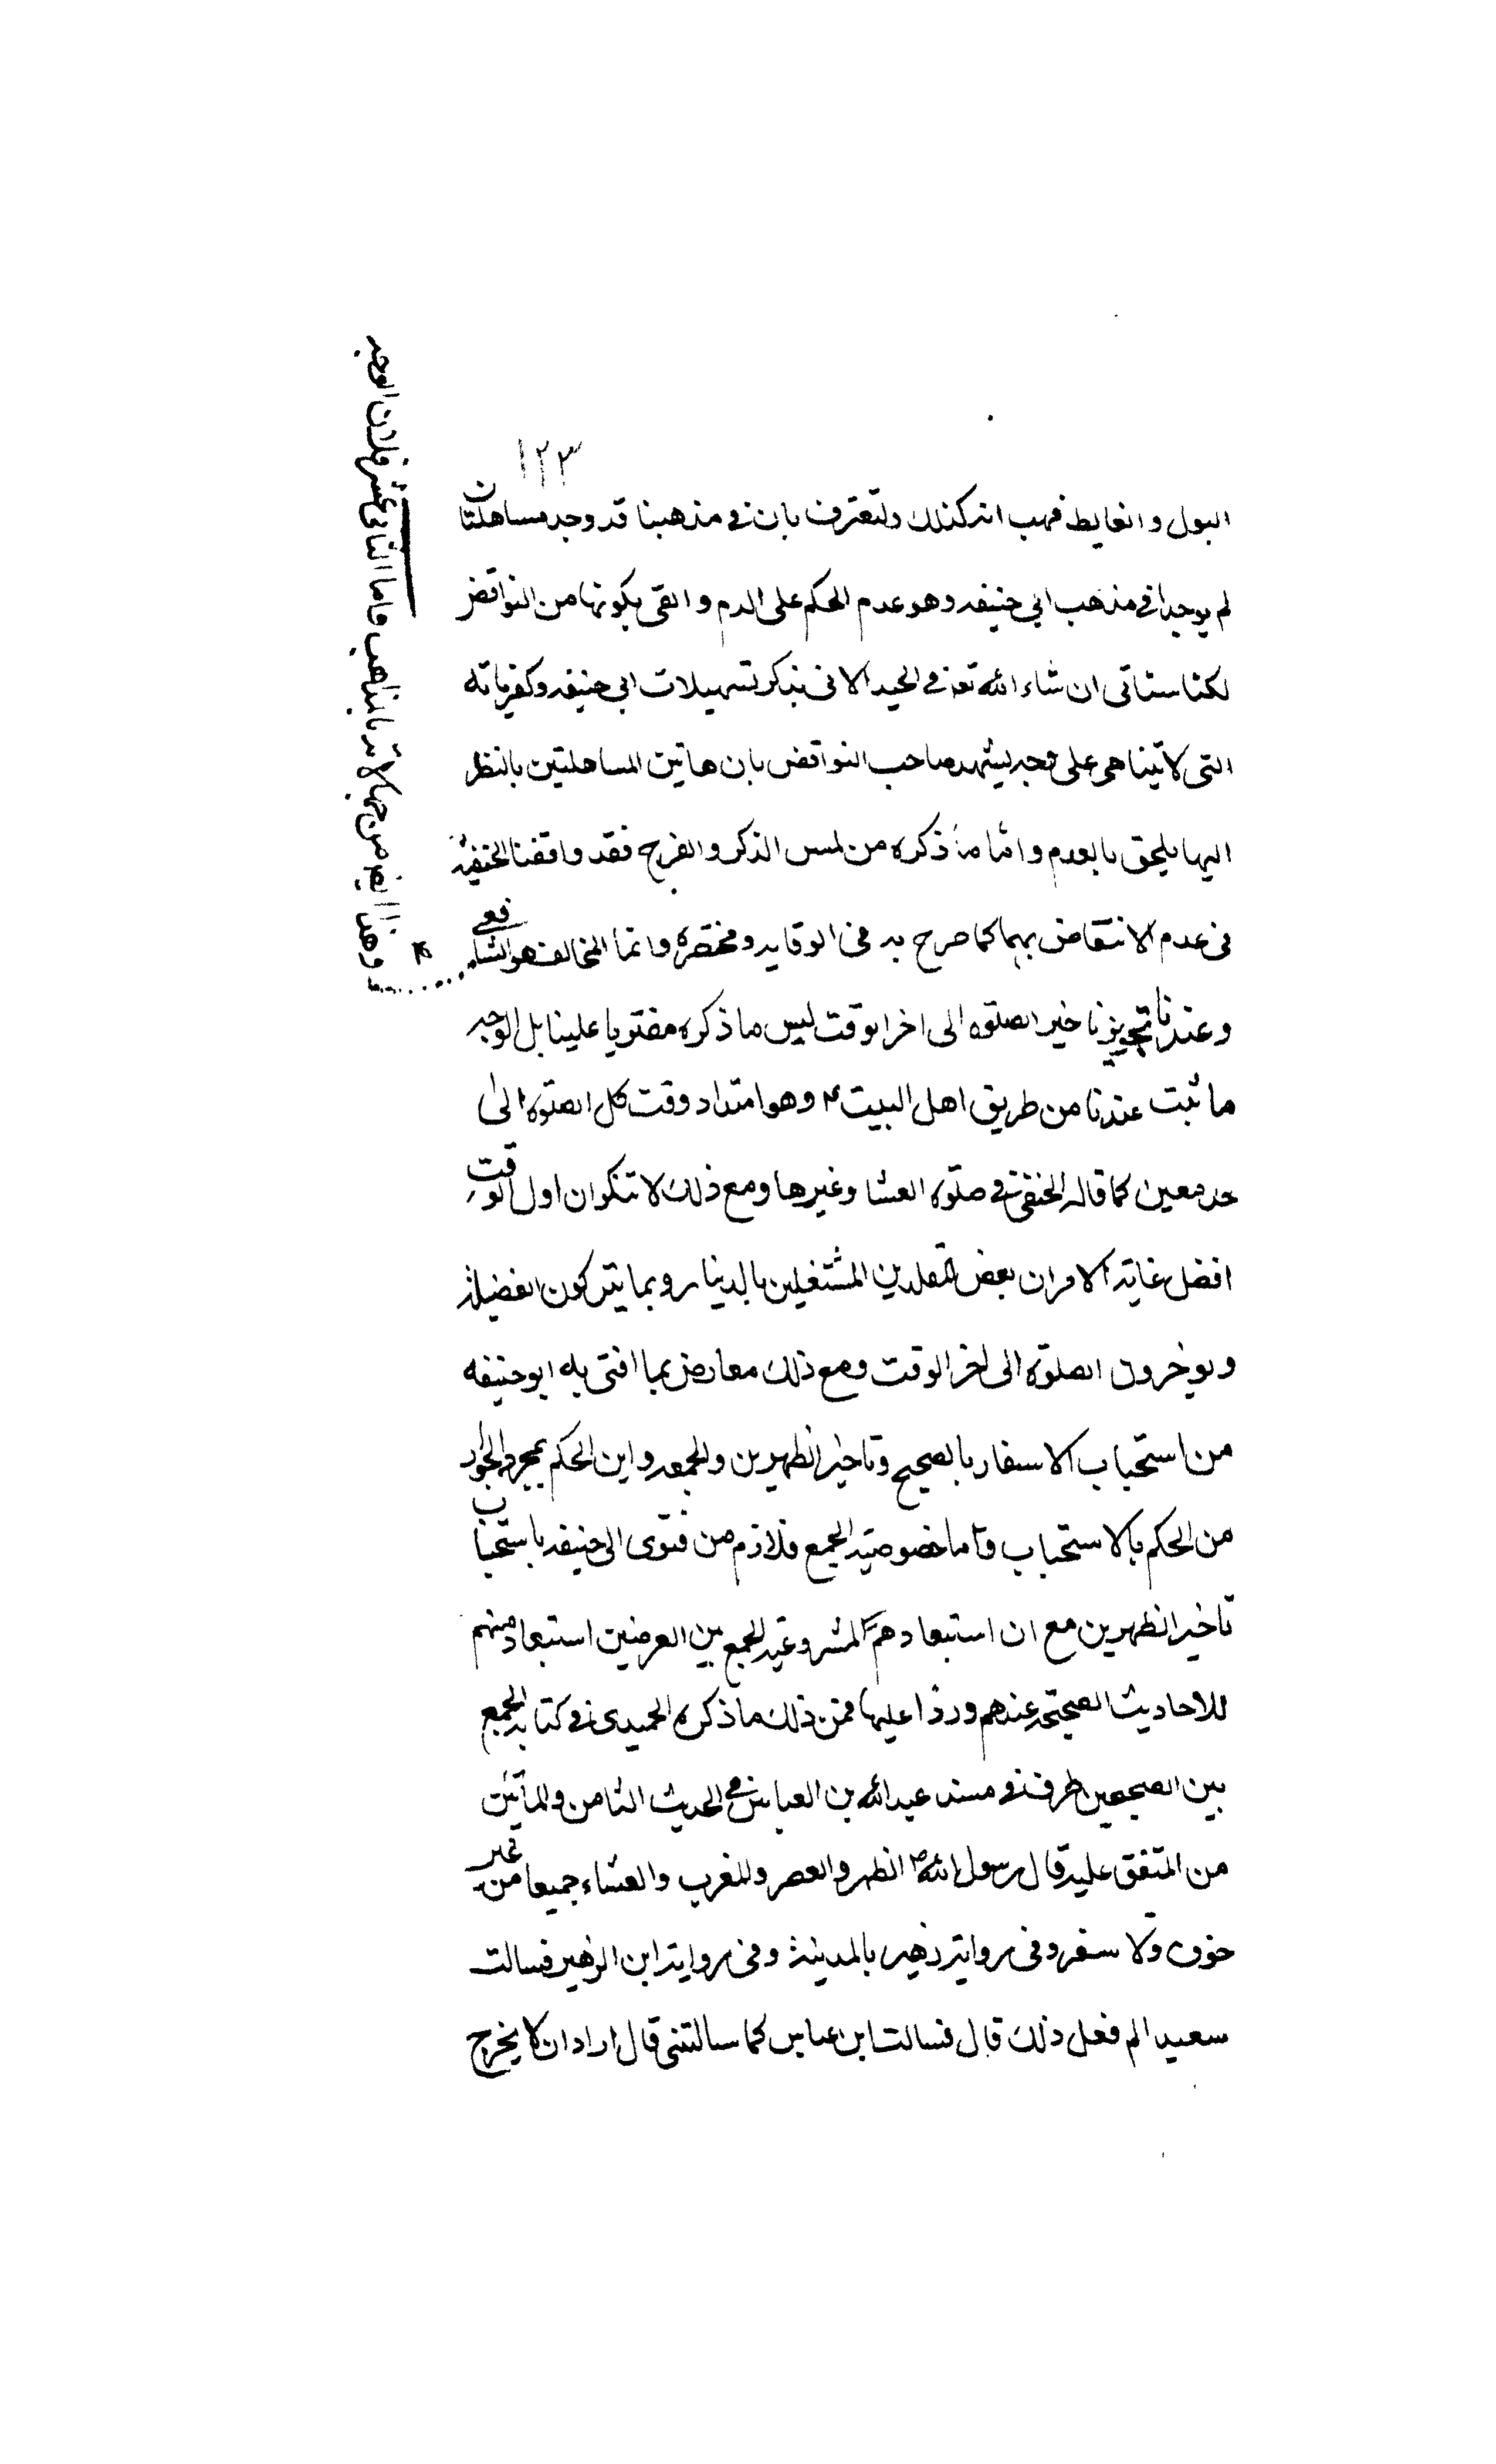 ١٢٣
البول و الغايط فهب انه كذلك ولتعترف بان فى مذهبنا قد وجد مساهلتان
لم يوجدا فى مذهب ابي حنيفه وهو عدم الحكم على الدم و القى بكونها من النواقض
لكنا سناتى ان شاء الله تعه فى الجند الاتى بذكر تسهيلات ابى حنيفه وكفرياته
التى لا تتناهى على وجه يشهد صاحب النواقض بان هاتين المساهلتين بالنظر
اليها يلحق بالعدم و اما ما ذكره من لمس الذكر و الفرج فقد وافقنا الحنفيه
فى عدم الانتقاض بهما كما صرح به فى الوقايه ومختصره وانما المخالف هو الشافعى
وهذا ايضا من جهالاته بالمذاهب فاما الثانى عشر فلان الوجه
وعندنا تجويز تاخير الصلوة الى اخر الوقت ليس ما ذكره مفتريا علينا بل الوجه
ما ثبت عندنا من طريق اهل البيت ع وهو امتداد وقت كل الصلوة الى
حد معين كما قاله الحنفى فى صلوة العشا وغيرها ومع ذلك لا ننكر ان اول الوقت
افضل غاية الامر ان بعض المقلدين المشتغلين بالدنيا ربما يتركون الفضيلة
ويوخرون الصلوة الى اخر الوقت ومع ذلك معارض بما افتى به ابو حنيفه
من استحباب الاسفار بالصبح وتاخير الظهرين والجمعه و اين الحكم بمجرد الجواز
من الحكم بالاستحباب و اما خصوصية الجمع فلازم من فتوى ابى حنيفه باستحباب
تاخير الظهرين مع ان استبعادهم لمشروعية الجمع بين الفرضين استبعاد منهم
للاحاديث الصحيحة عندهم وردا عليها فمن ذلك ما ذكره الحميدى فى كتابه الجمع
بين الصحيحين فى مسند عبدالله بن العباس فى الحديث الثامن والمأتين
من المتفق عليه قال رسول الله ص الظهر والعصر والمغرب والعشاء جميعا من غير
خوف ولا سفر وفى رواية زهير بالمدينة وفى رواية ابن الزهير فسالت
سعيدا لم فعل ذلك قال فسالت ابن عباس كما سالتنى قال اراد ان لا يخرج